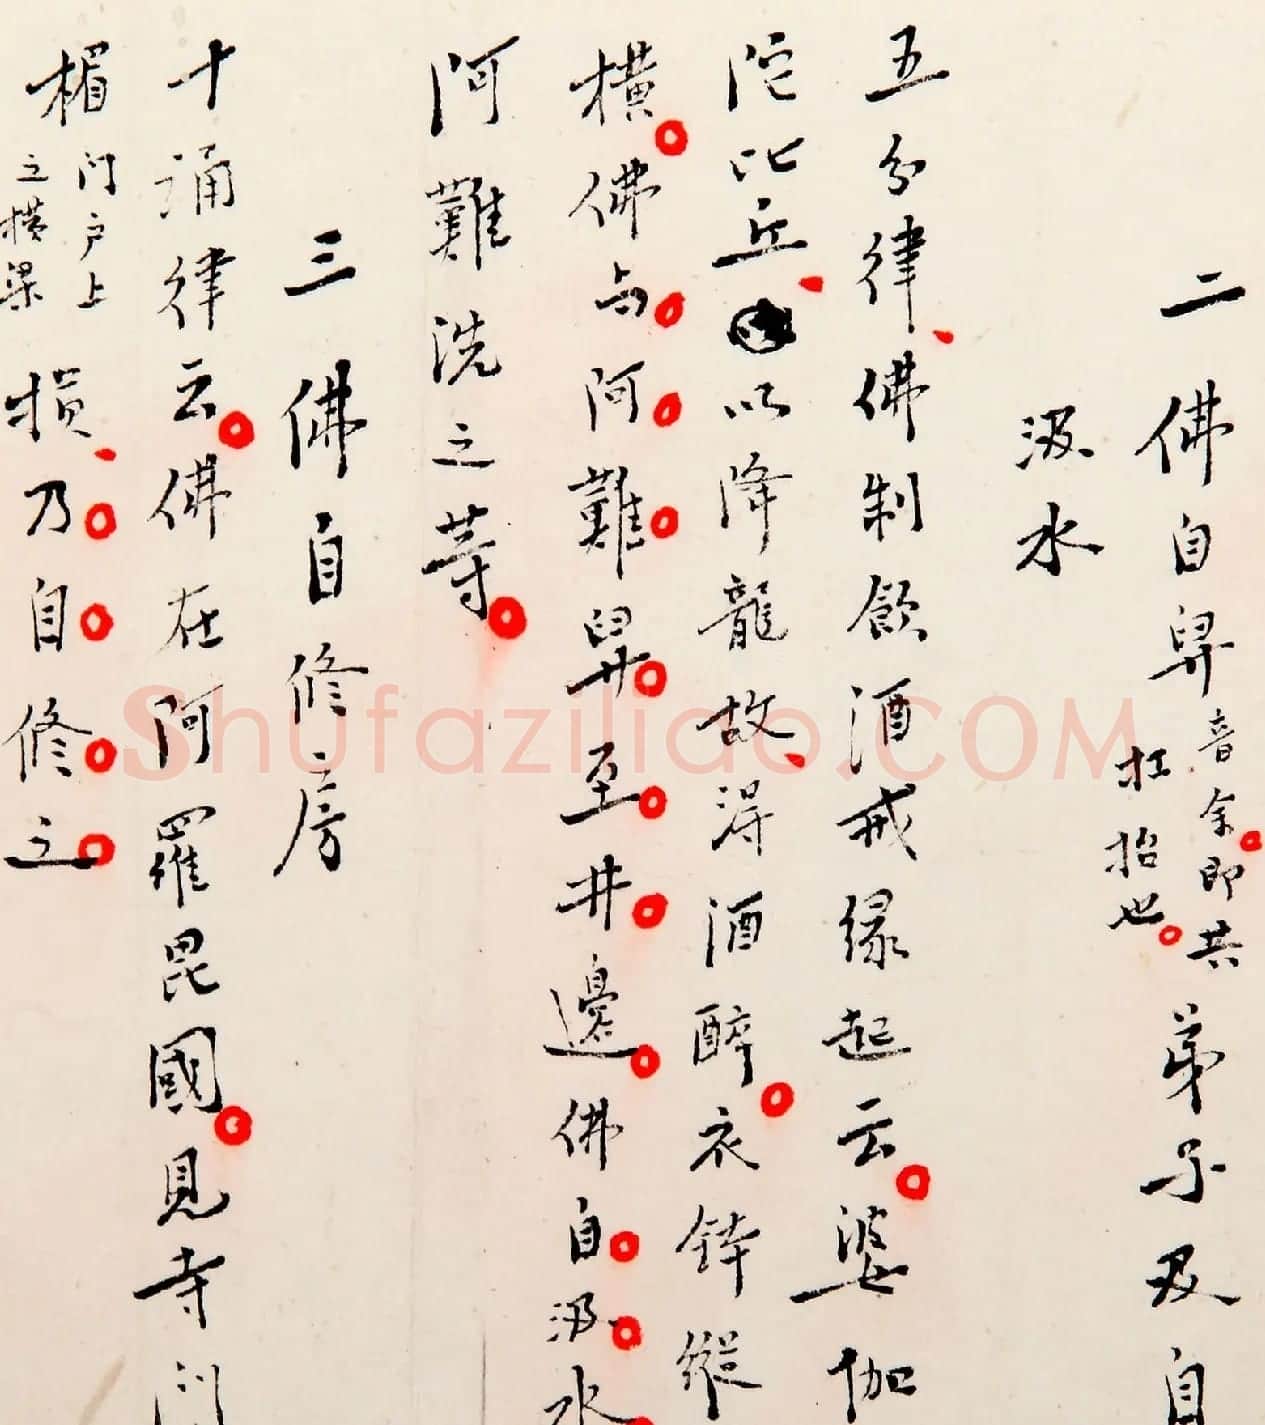 二佛自舁音余即共
扛抬也弟子及自
汲水
五分律佛制飲酒戒緣起云婆伽
陀比丘以降龍故得酒醉衣鉢縱
橫佛与阿難舁至井邊佛自汲水
阿難洗之等
三佛自修房
十誦律云佛在阿羅毘國見寺门
楣门户上
之横梁損乃自修之
Shufaziliao.COM